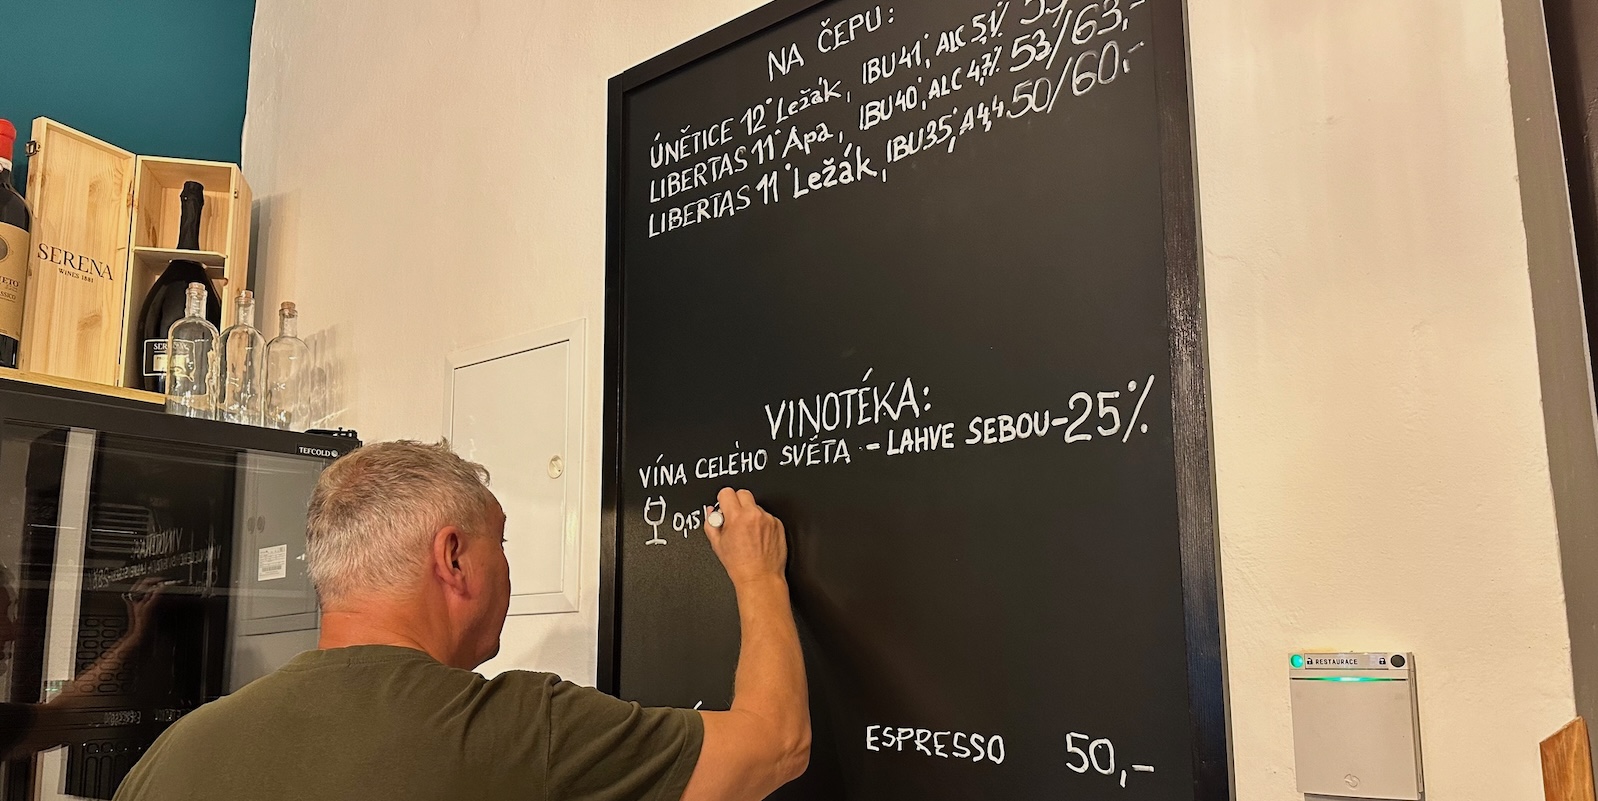 NA ČEPU:
ÚNĚTICE 12° Ležák, IBU 41, ALC 5,1%
LIBERTAS 11° Apa, IBU 40, ALC 4,7% 53/63,-
LIBERTAS 11° Ležák, IBU 35, A 4,4 50/60,-
VINOTÉKA:
VÍNA CELÉHO SVĚTA - LAHVE SEBOU -25%
0,15
ESPRESSO 50,-
SERENA
WINES 1881
TEFCOLD
RESTAURACE